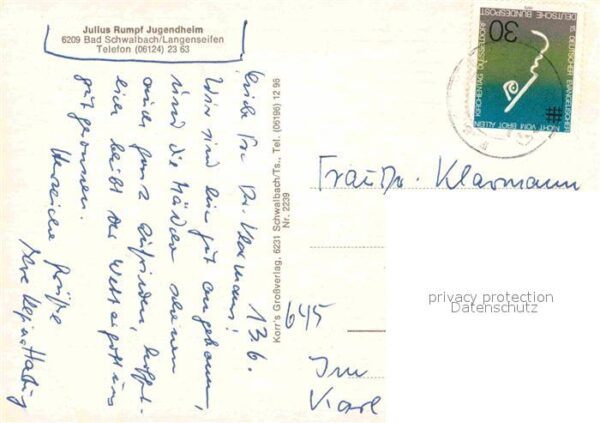 Julius Rumpf Jugendheim
6209 Bad Schwalbach/Langenseifen
Telefon (06124) 23 63
13.6.
Liebe Fr. Dr. Klarmann!
Wir sind hier gut angekommen,
und die Mädchen scheinen
auch ganz zufrieden, hoffent-
lich bleibt der Wettergott uns
gut gesonnen.
Herzliche Grüße
Ihre
Korr's Großverlag, 6231 Schwalbach/Ts., Tel. (06196) 12 96
Nr. 2239
16. DEUTSCHER EVANGELISCHER
KIRCHENTAG DÜSSELDORF
NICHT VOM BROT ALLEIN
DEUTSCHE BUNDESPOST
30
Frau Dr. Klarmann
645
Im
privacy protection
Datenschutz